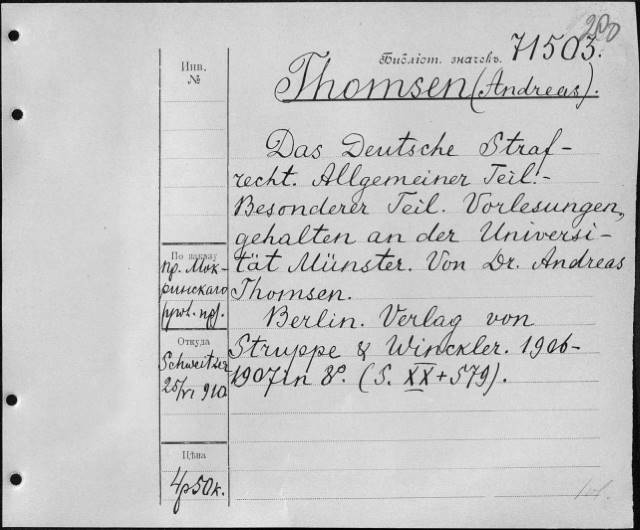 200
Библіот. значекъ. 71503.
Thomsen (Andreas).
Инв.
№
Das Deutsche Straf-
recht. Allgemeiner Teil.-
Besonderer Teil. Vorlesungen,
gehalten an der Universi-
tät Münster. Von Dr. Andreas
Thomsen.
Berlin. Verlag von
Struppe & Winckler. 1906-
1907 in 8º. (S. XX + 579).
По заказу
пр. Мок-
ринскаго
Откуда
Schweitzer
25/VI 910
Цѣна
4р50к.